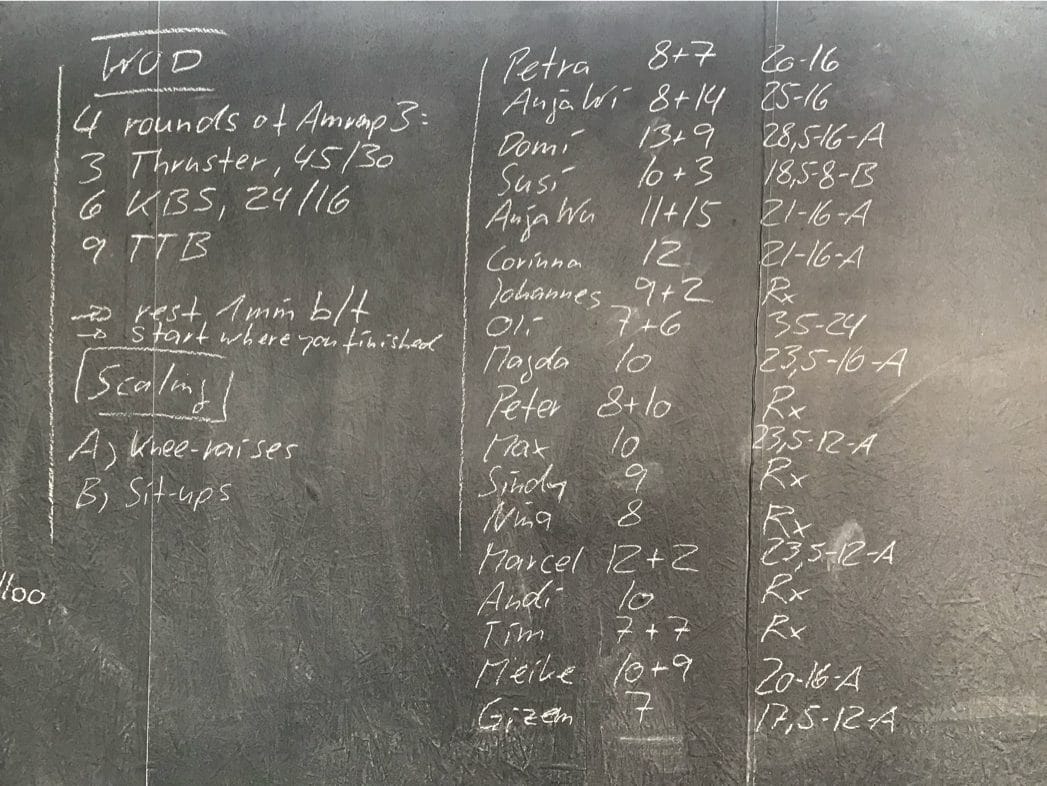 WOD
4 rounds of Amrap 3:
3 Thruster, 45/30
6 KBS, 24/16
9 TTB
→ rest 1min b/t
→ start where you finished
Scaling
A) Knee-raises
B) Sit-ups
1100
Petra 8+7 20-16
Anja Wi 8+14 25-16
Domi 13+9 28,5-16-A
Susi 10+3 18,5-8-B
Anja Wu 11+15 21-16-A
Corinna 12 21-16-A
Johannes 9+2 Rx
Oli 7+6 35-24
Magda 10 23,5-16-A
Peter 8+10 Rx
Max 10 23,5-12-A
Sindy 9 Rx
Nina 8 Rx
Marcel 12+2 23,5-12-A
Andi 10 Rx
Tim 7+7 Rx
Meike 10+9 20-16-A
Gizem 7 17,5-12-A